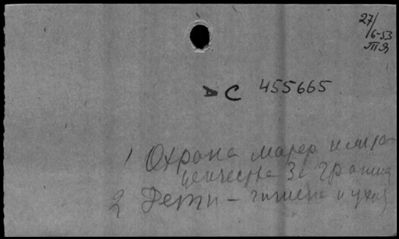 27/6-53
ТЯ
С 455665
1 Охрана матер и мла
денчества за границ
2 Дети – гигиена и уход